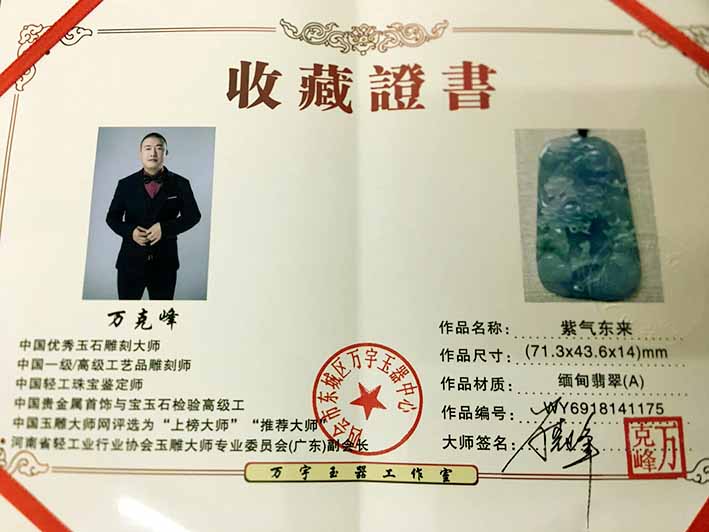 收藏證書
万克峰
中国优秀玉石雕刻大师
中国一级/高级工艺品雕刻师
中国轻工珠宝鉴定师
中国贵金属首饰与宝玉石检验高级工
中国玉雕大师网评选为“上榜大师”“推荐大师”
河南省轻工业行业协会玉雕大师专业委员会(广东)副会长
四会市东城区万宇玉器中心
作品名称: 紫气东来
作品尺寸: (71.3x43.6x14)mm
作品材质: 缅甸翡翠(A)
作品编号: WY6918141175
大师签名:
万克峰
万宇玉器工作室